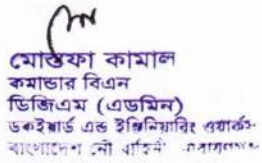 মোস্তফা কামাল
কমান্ডার বিএন
ডিজিএম (এডমিন)
ডকইয়ার্ড এন্ড ইঞ্জিনিয়ারিং ওয়ার্কস
বাংলাদেশ নৌ বাহিনী